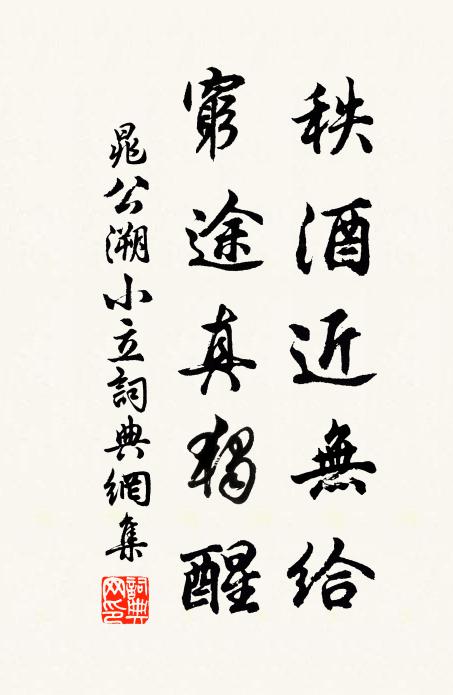 秩酒近無給
窮途真獨醒
晁公溯小立詞典網集
詞典網印